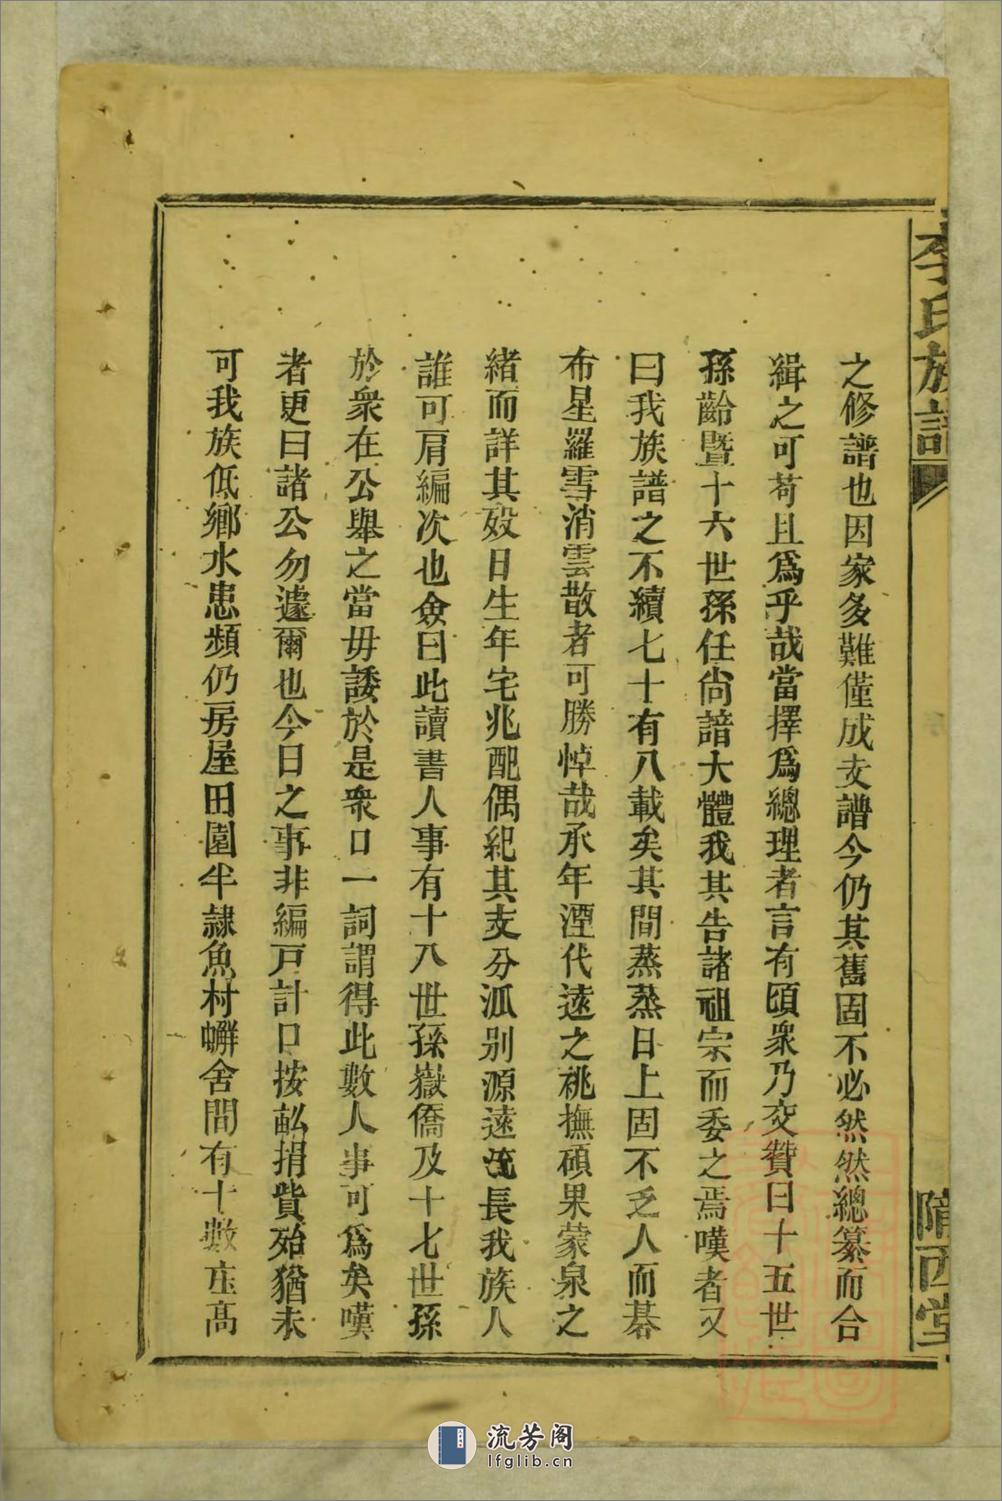 李氏族譜
隴西堂
之修譜也因家多難僅成支譜今仍其舊固不必然然總纂而合
緝之可苟且為乎哉當擇為總理者言有頃衆乃交贊曰十五世
孫齡暨十六世孫任尙諳大體我其告諸祖宗而委之焉嘆者又
曰我族譜之不續七十有八載矣其間蒸蒸日上固不乏人而碁
布星羅雪消雲散者可勝悼哉承年湮代遠之祧撫碩果蒙泉之
緒而詳其歿日生年宅兆配偶紀其支分泒別源遠流長我族人
誰可肩編次也僉曰此讀書人事有十八世孫嶽僑及十七世孫
於衆在公舉之當毋諉於是衆口一詞謂得此數人事可為矣嘆
者更曰諸公勿遽爾也今日之事非編戸計口按畝捐貲殆猶未
可我族低鄉水患頻仍房屋田園半隷魚村蠏舍間有十數庄高
流芳阁
lfglib.cn